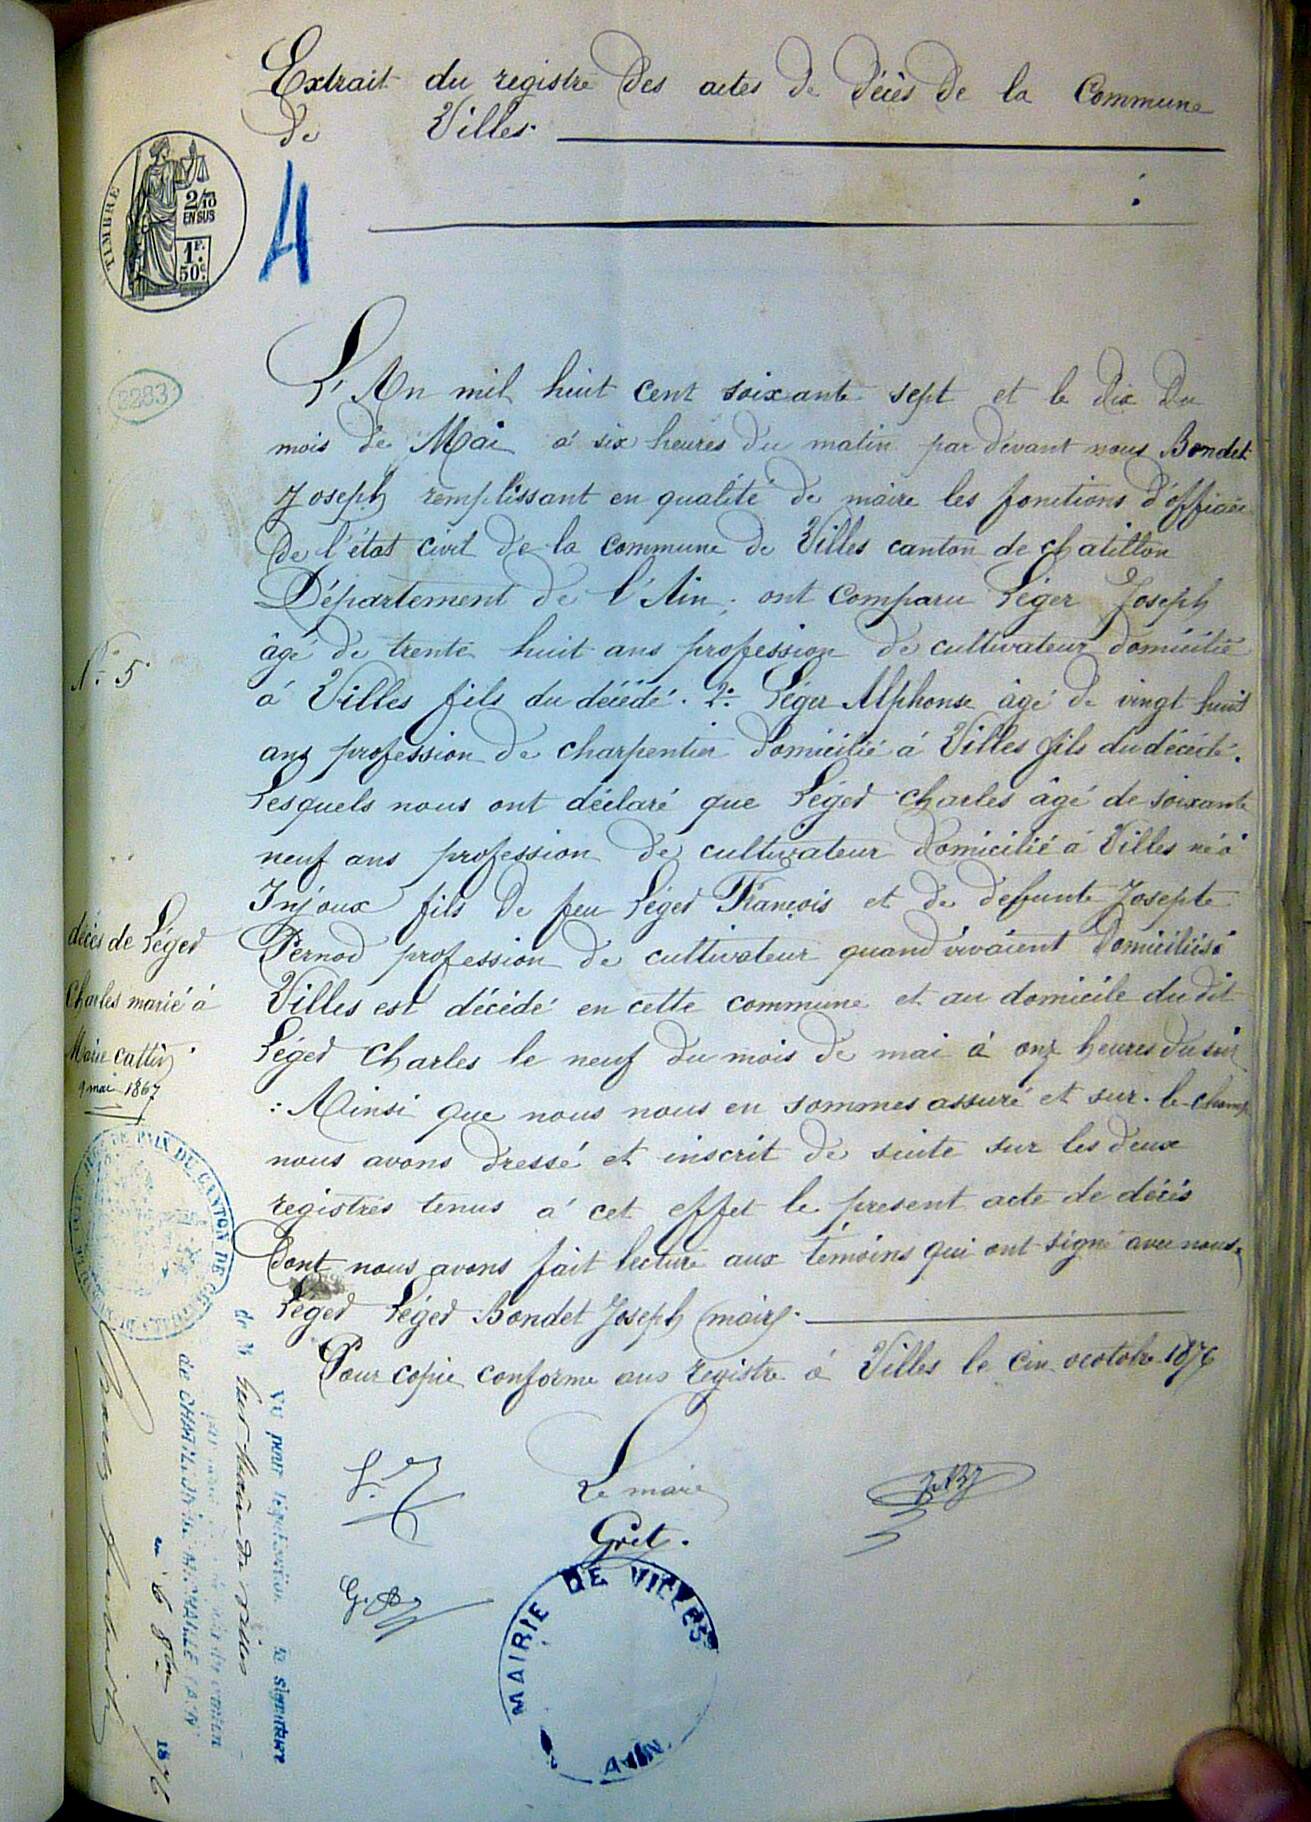 Extrait du registre des actes de décès de la Commune
de Villes.
TIMBRE
2/10
EN SUS
1F.
50c.
4
2283
L'An mil huit cent soixante sept et le dix du
mois de Mai à six heures du matin par devant nous Bondet
Joseph remplissant en qualité de maire les fonctions d'officier
de l'état civil de la commune de Villes canton de chatillon
Département de l'Ain, ont comparu Léger Joseph
âgé de trente huit ans profession de cultivateur domicilié
à Villes fils du décédé. 2° Léger Alphonse âgé de vingt huit
ans profession de charpentier domicilié à Villes fils du décédé.
Lesquels nous ont déclaré que Léger Charles âgé de soixante
neuf ans profession de cultivateur domicilié à Villes né à
Injoux fils de feu Léger François et de defunte Josepte
Pernod profession de cultivateur quand vivaient domiciliés à
Villes est décédé en cette commune et au domicile du dit
Léger Charles le neuf du mois de mai à onz heures du soir
: Ainsi que nous nous en sommes assuré et sur le champ
nous avons dressé et inscrit de suite sur les deux
registres tenus à cet effet le present acte de décès
dont nous avons fait lecture aux témoins qui ont signé avec nous.
Léger Léger Bondet Joseph maire.
Pour copie conforme aux registre à Villes le cin octobre 1876
Le maire
Gret.
MAIRIE DE VILLES
AIN
N° 5
décès de Léger
Charles marié à
Marie cattin
9 mai 1867
DE PAIX DU CANTON DE
Vu pour légalisation de signature
de M Gret maire de Villes
de CHATILLON-de-MICHAILLE (AIN)
6 8bre 1876